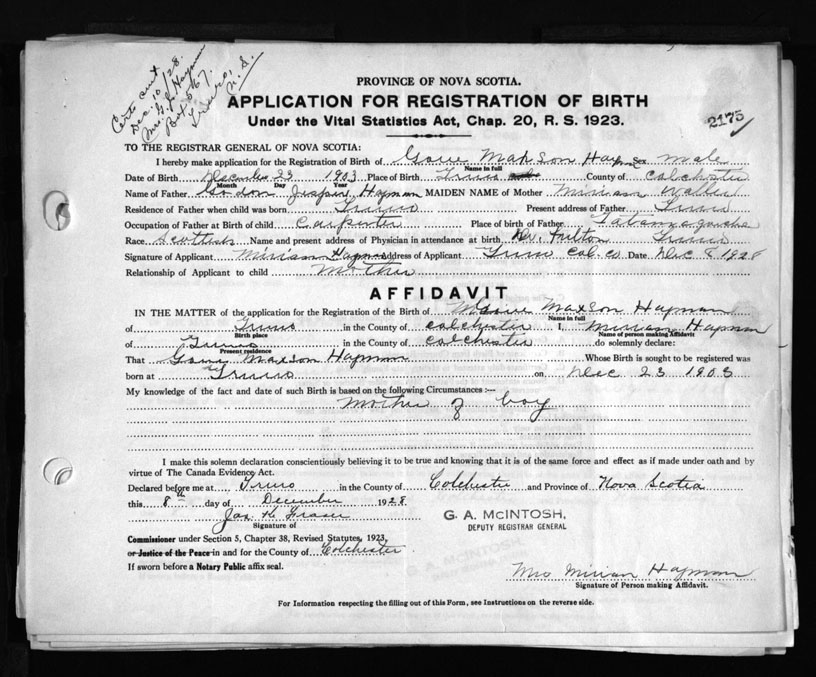 Certs sent
Dec. 10/28.
Mrs. G. J. Hayman
Box 567.
Truro, N. S.
PROVINCE OF NOVA SCOTIA.
APPLICATION FOR REGISTRATION OF BIRTH
2175
Under the Vital Statistics Act, Chap. 20, R. S. 1923.
TO THE REGISTRAR GENERAL OF NOVA SCOTIA:
I hereby make application for the Registration of Birth of Maxson Sex male
Name in full
Date of Birth December 23 1903 Place of Birth Truro County of Colchester
Month Day Year
Name of Father Jesper Hayman MAIDEN NAME of Mother Miriam
Residence of Father when child was born Truro Present address of Father Truro
Occupation of Father at Birth of child Carpenter Place of birth of Father Tatamagouche
Race Scottish Name and present address of Physician in attendance at birth Dr. Fulton Truro
Signature of Applicant Miriam Hayman Address of Applicant Truro Col. Co. Date Dec 8 1928
Relationship of Applicant to child Mother
AFFIDAVIT
IN THE MATTER of the application for the Registration of the Birth of Maxson Hayman
Name in full
of Truro in the County of Colchester I, Miriam Hayman
Birth place Name of person making Affidavit
of Truro in the County of Colchester do solemnly declare:
Present residence
That Maxson Hayman Whose Birth is sought to be registered was
born at Truro on Dec 23 1903
My knowledge of the fact and date of such Birth is based on the following Circumstances :—
Mother of boy
I make this solemn declaration conscientiously believing it to be true and knowing that it is of the same force and effect as if made under oath and by
virtue of The Canada Evidence Act.
Declared before me at Truro in the County of Colchester and Province of Nova Scotia
this 8th day of December 1928
Jas. K. Fraser
Signature of
G. A. McINTOSH,
DEPUTY REGISTRAR GENERAL
Commissioner under Section 5, Chapter 38, Revised Statutes, 1923,
or Justice of the Peace in and for the County of Colchester
If sworn before a Notary Public affix seal.
Mrs Miriam Hayman
Signature of Person making Affidavit.
For Information respecting the filling out of this Form, see Instructions on the reverse side.